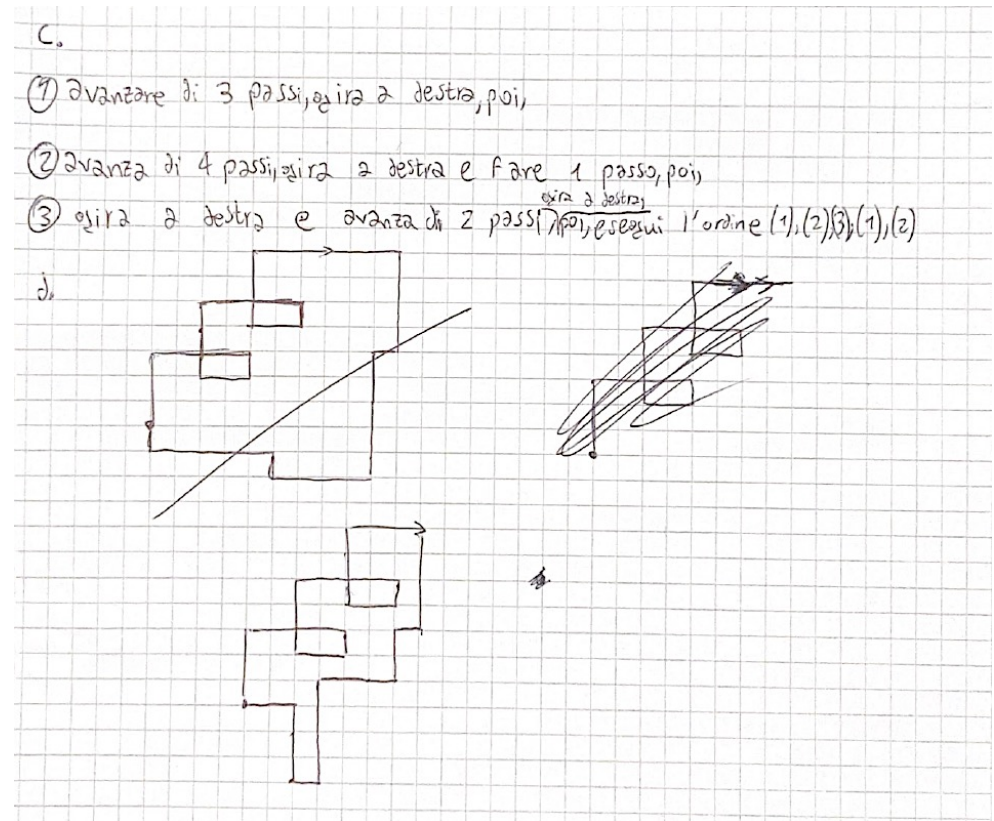 C.
① avanzare di 3 passi, gira a destra, poi,
② avanza di 4 passi, gira a destra e fare 1 passo, poi,
gira a destra,
③ gira a destra e avanza di 2 passi, poi, esegui l'ordine (1), (2), (3), (1), (2)
d.